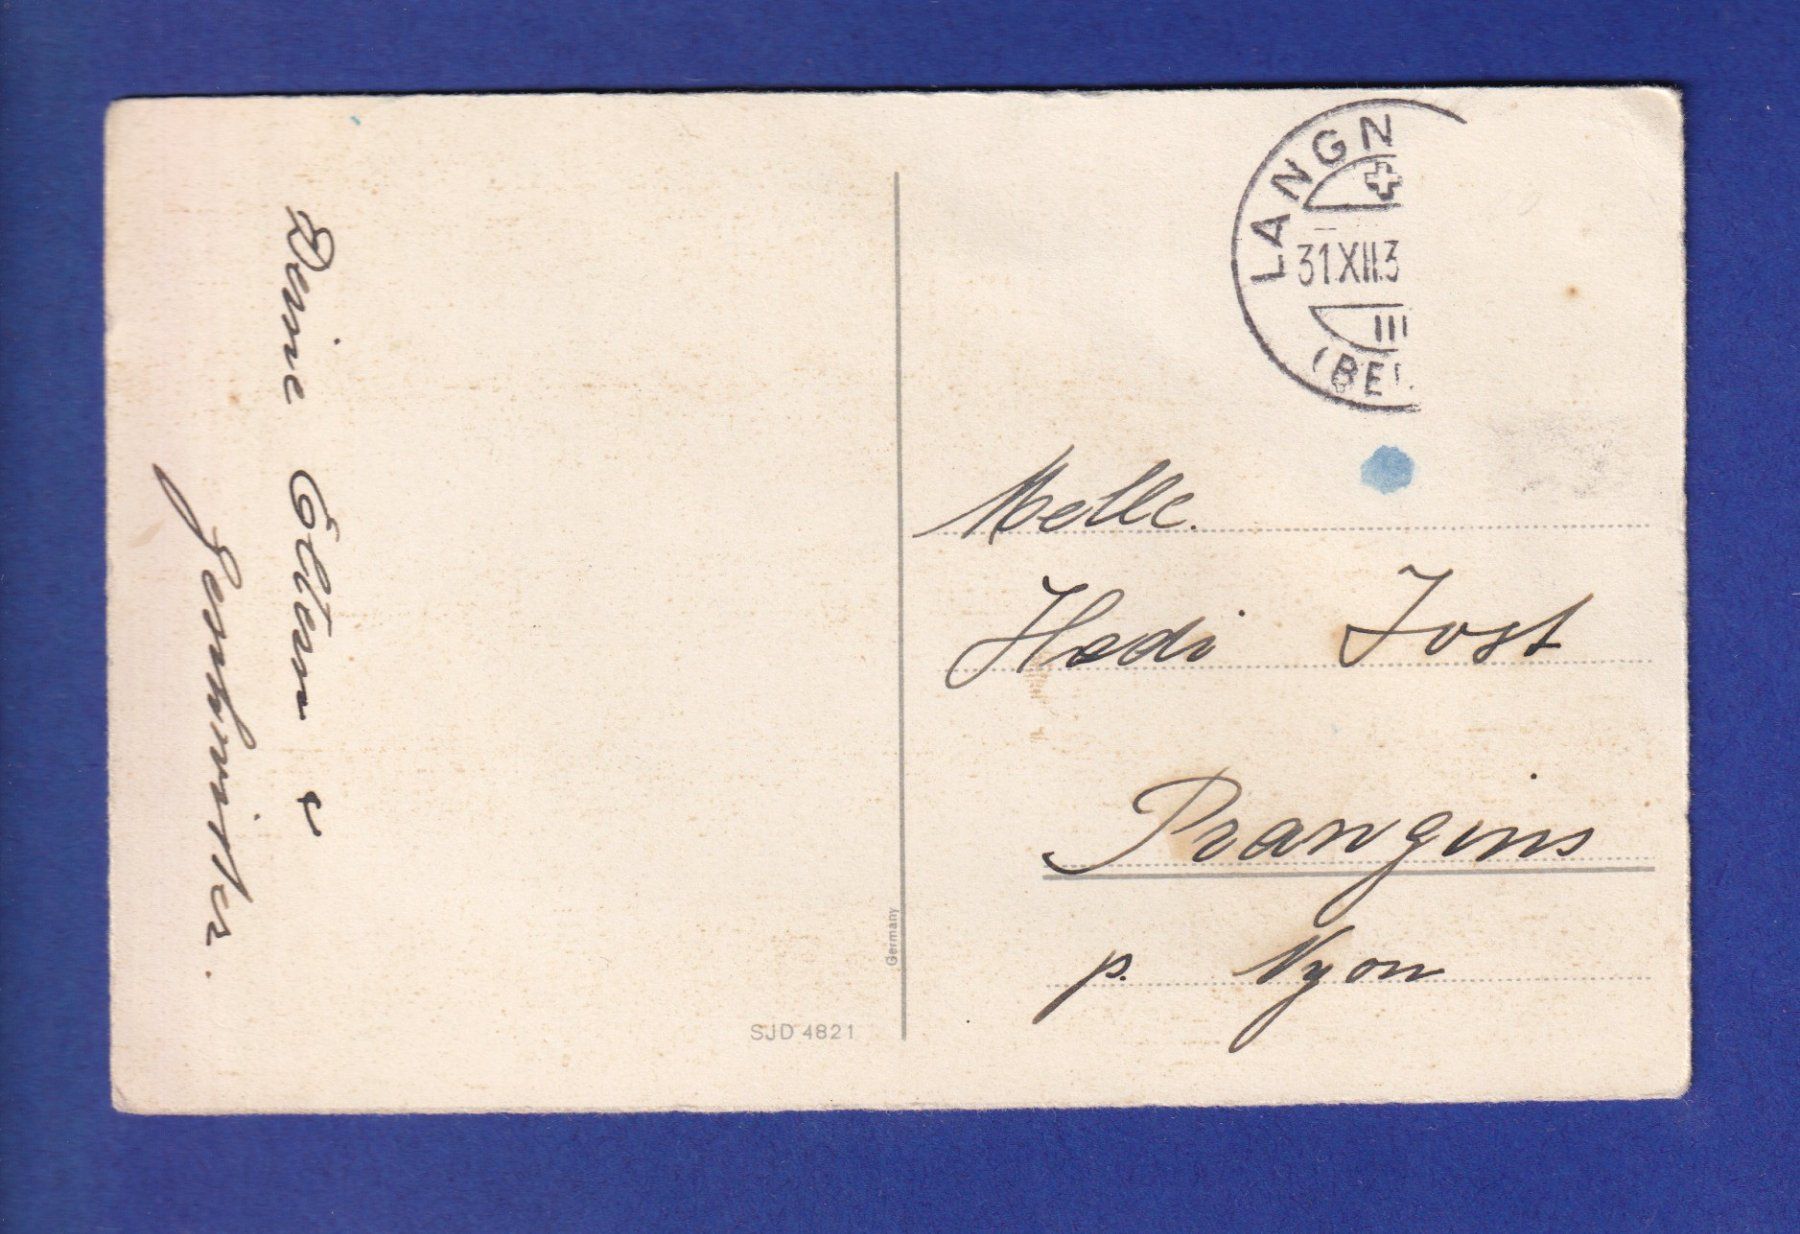 Deine Eltern u
Geschwister.
LANGN
31.XII.3
III
(BE
Melle.
Hedi Jost
Prangins
p. Nyon
Germany
SJD 4821